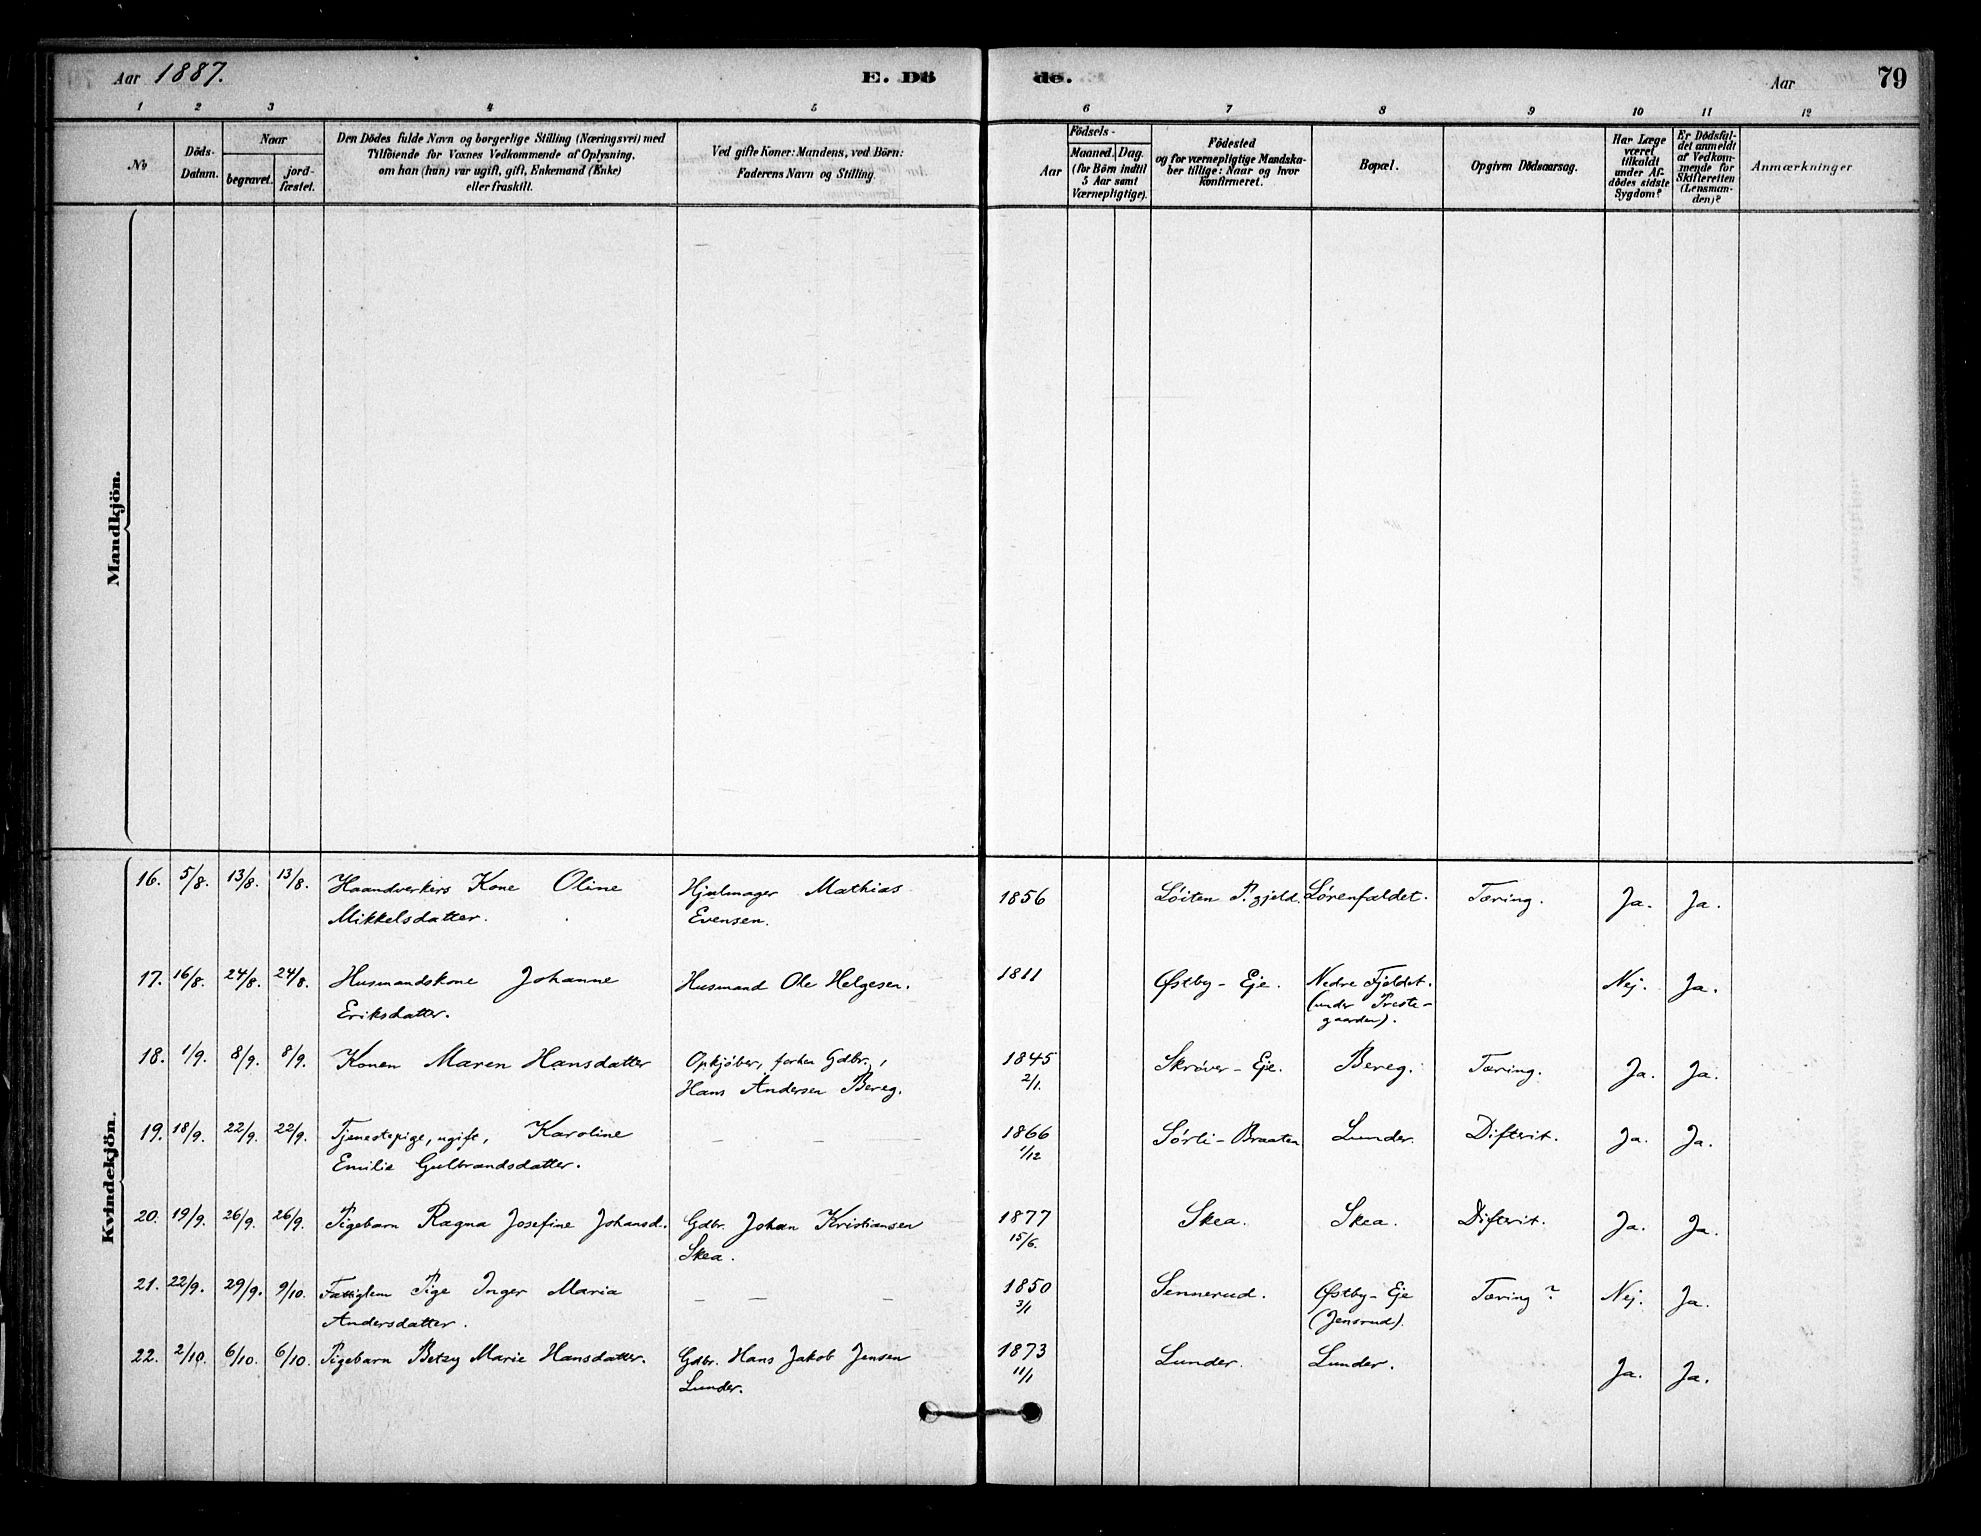 Aar 1887. E. Dö de. Aar 79
1 2 3 4 5 6 7 8 9 10 11 12
No
Döds-
Datum.
Naar
begravet.
jord-
fæstet.
Den Dödes fulde Navn og borgerlige Stilling (Næringsvei) med
Tilföiende for Voxnes Vedkommende af Oplysning,
om han (hun) var ugift, gift, Enkemand (Enke)
eller fraskilt.
Ved gifte Koner: Mandens, ved Börn:
Faderens Navn og Stilling.
Födsels-
Aar
Maaned. Dag.
(for Börn indtil
5 Aar samt
Værnepligtige).
Födested
og for værnepligtige Mandska-
ber tillige: Naar og hvor
Konfirmeret.
Bopæl.
Opgiven Dödsaarsag.
Har Læge
været
tilkaldt
under Af-
dödes sidste
Sygdom?
Er Dödsfal-
det anmeldt
af Vedkom-
mende for
Skifteretten
(Lensman-
den)?
Anmærkninger
Mandkjön.
Kvindekjön.
16. 5/8. 13/8. 13/8. Haandverkers Kone Oline Hjulmager Mathias 1856 Löiten P.gjeld. Lörenfaldet. Tæring. Ja. Ja.
Mikkelsdatter. Evensen.
17. 16/8. 24/8. 24/8. Husmandskone Johanne Husmand Ole Helgesen. 1811 Østby-Eje. Nedre Fjeldet. Nej. Ja.
Eriksdatter. (under Preste-
gaarden).
18. 1/9. 8/9. 8/9. Konen Maren Hansdatter Opkjøber, forhen Gdbr., 1845 Skrøver-Eje. Bereg. Tæring. Ja. Ja.
Hans Andersen Bereg. 2/1.
19. 18/9. 22/9. 22/9. Tjenestepige, ugift, Karoline — — — 1866 Sörli-Braaten Lunder. Difterit. Ja. Ja.
Emilie Gulbrandsdatter. 1/12
20. 19/9. 26/9. 26/9. Pigebarn Ragna Josefine Johansd. Gdbr. Johan Kristiansen 1877 Skea. Skea. Difterit. Ja. Ja.
Skea. 15/6.
21. 22/9. 29/9. 9/10. Fattiglem Pige Inger Maria — — — 1850 Sennerud. Østby-Eje Tæring? Nej. Ja.
Andersdatter. 3/1 (Jensrud).
22. 2/10. 6/10. 6/10. Pigebarn Betzy Marie Hansdatter. Gdbr. Hans Jakob Jensen 1873 Lunder. Lunder. Ja. Ja.
Lunder. 11/1